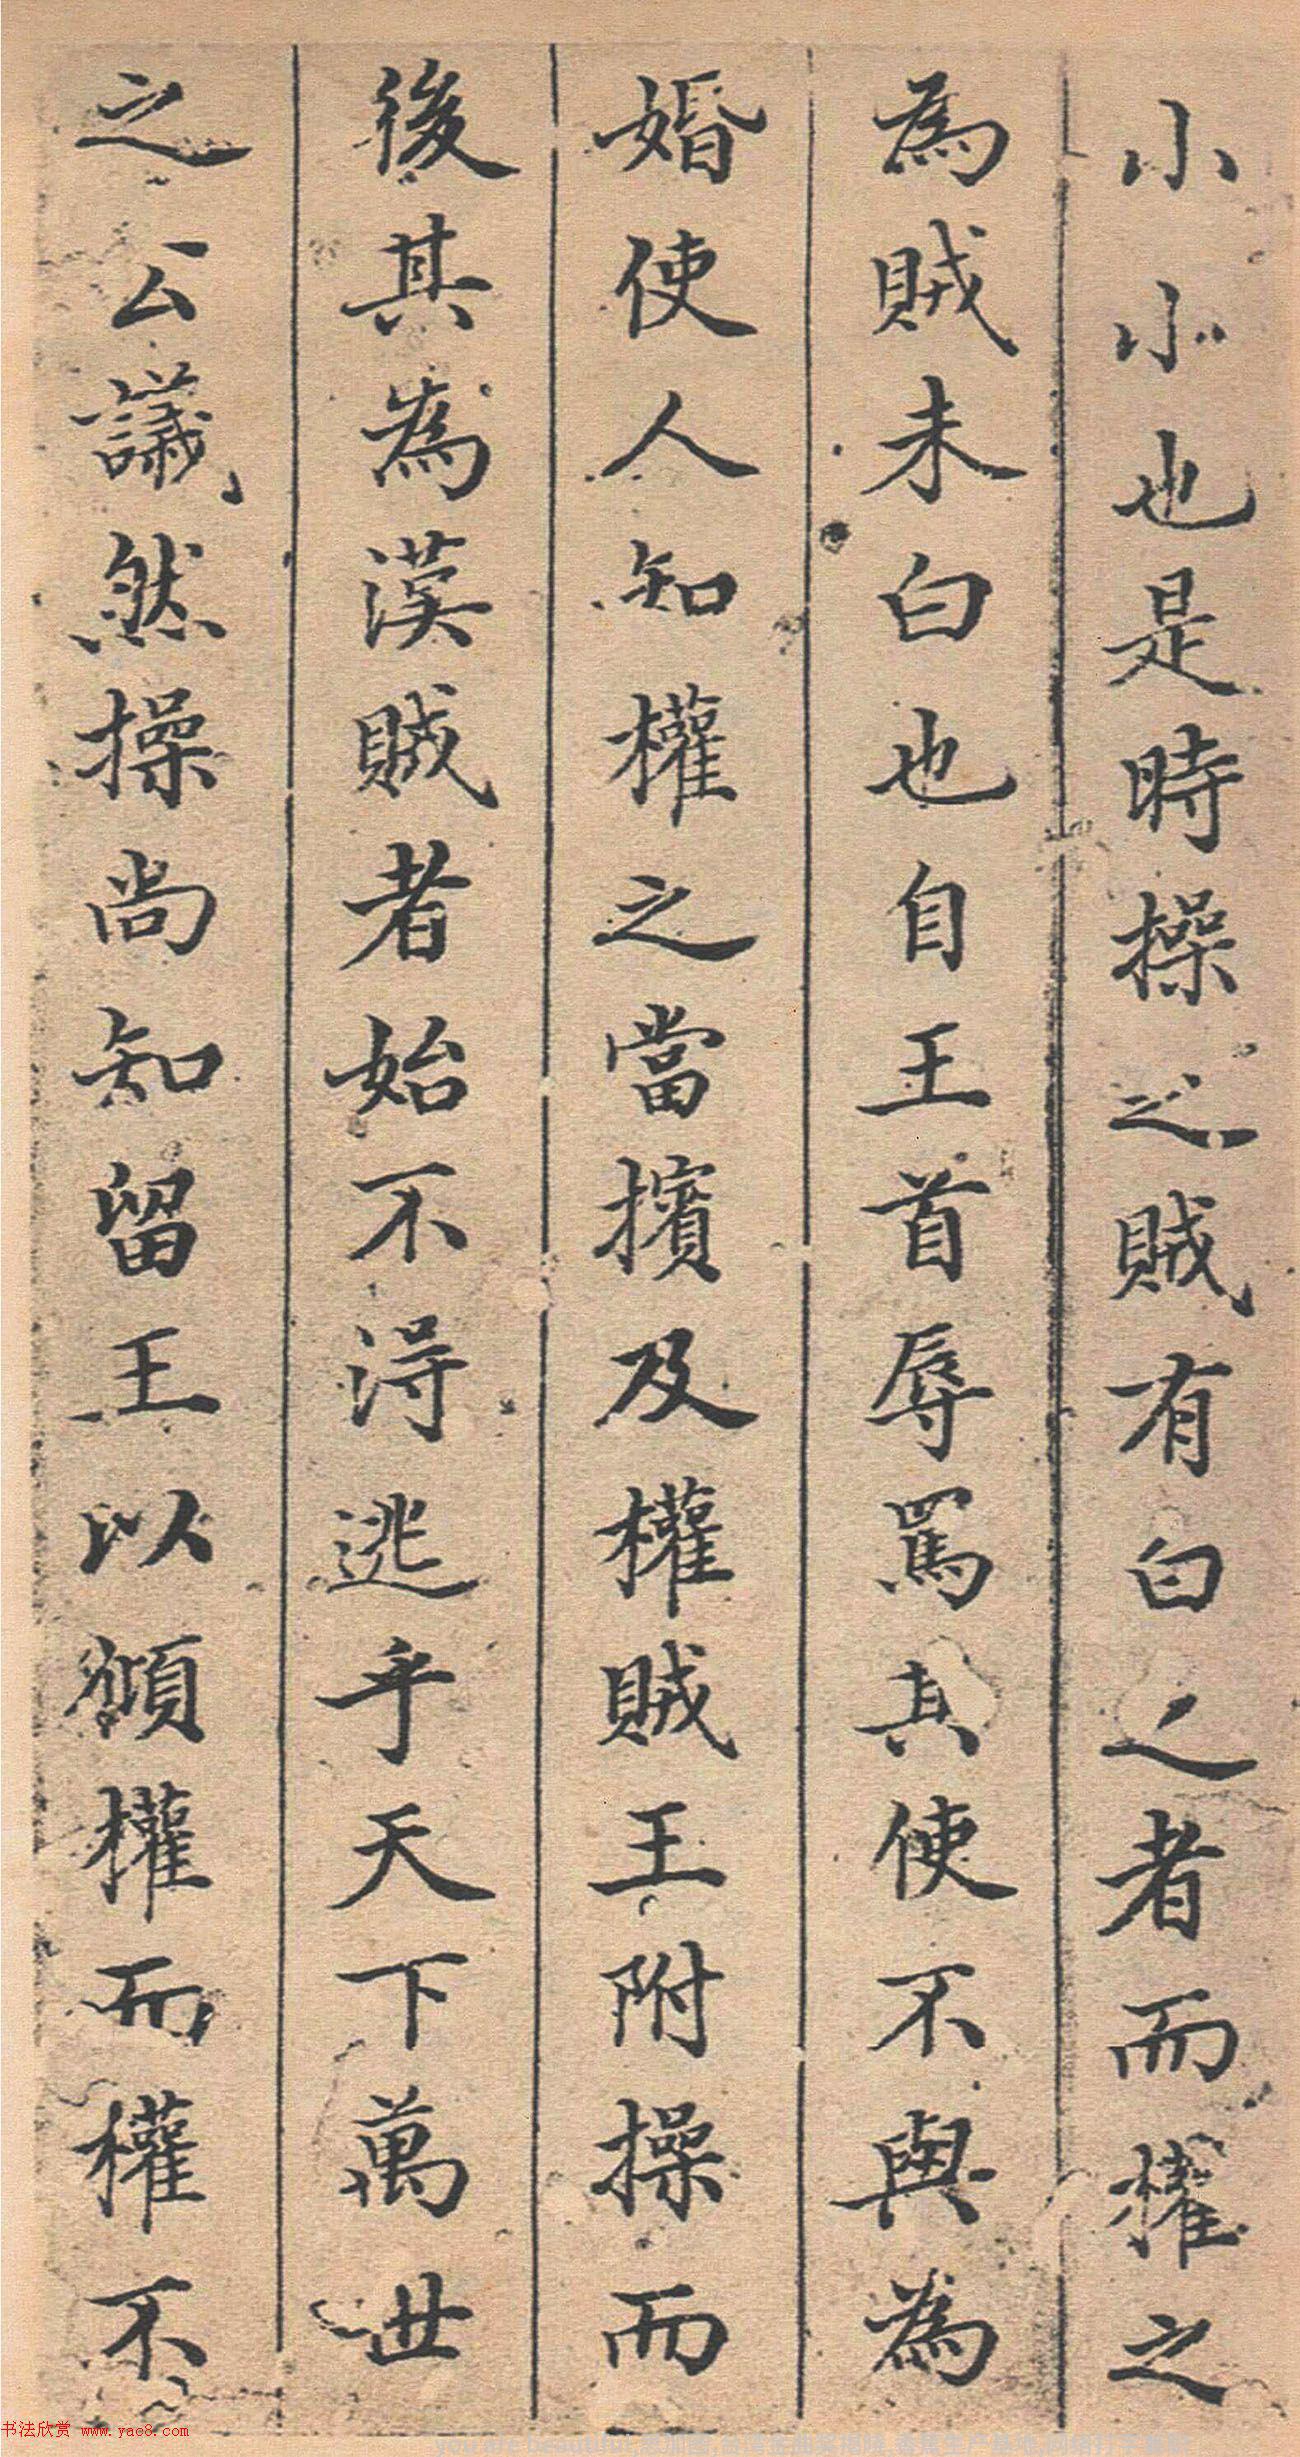 小小也是時操之賊有白之者而權之
為賊未白也自王首辱罵其使不與為
婚使人知權之當擯及權賊王附操而
後其為漢賊者始不得逃乎天下萬世
之公議然操尚知留王以頡權而權不
书法欣赏 www.yac8.com